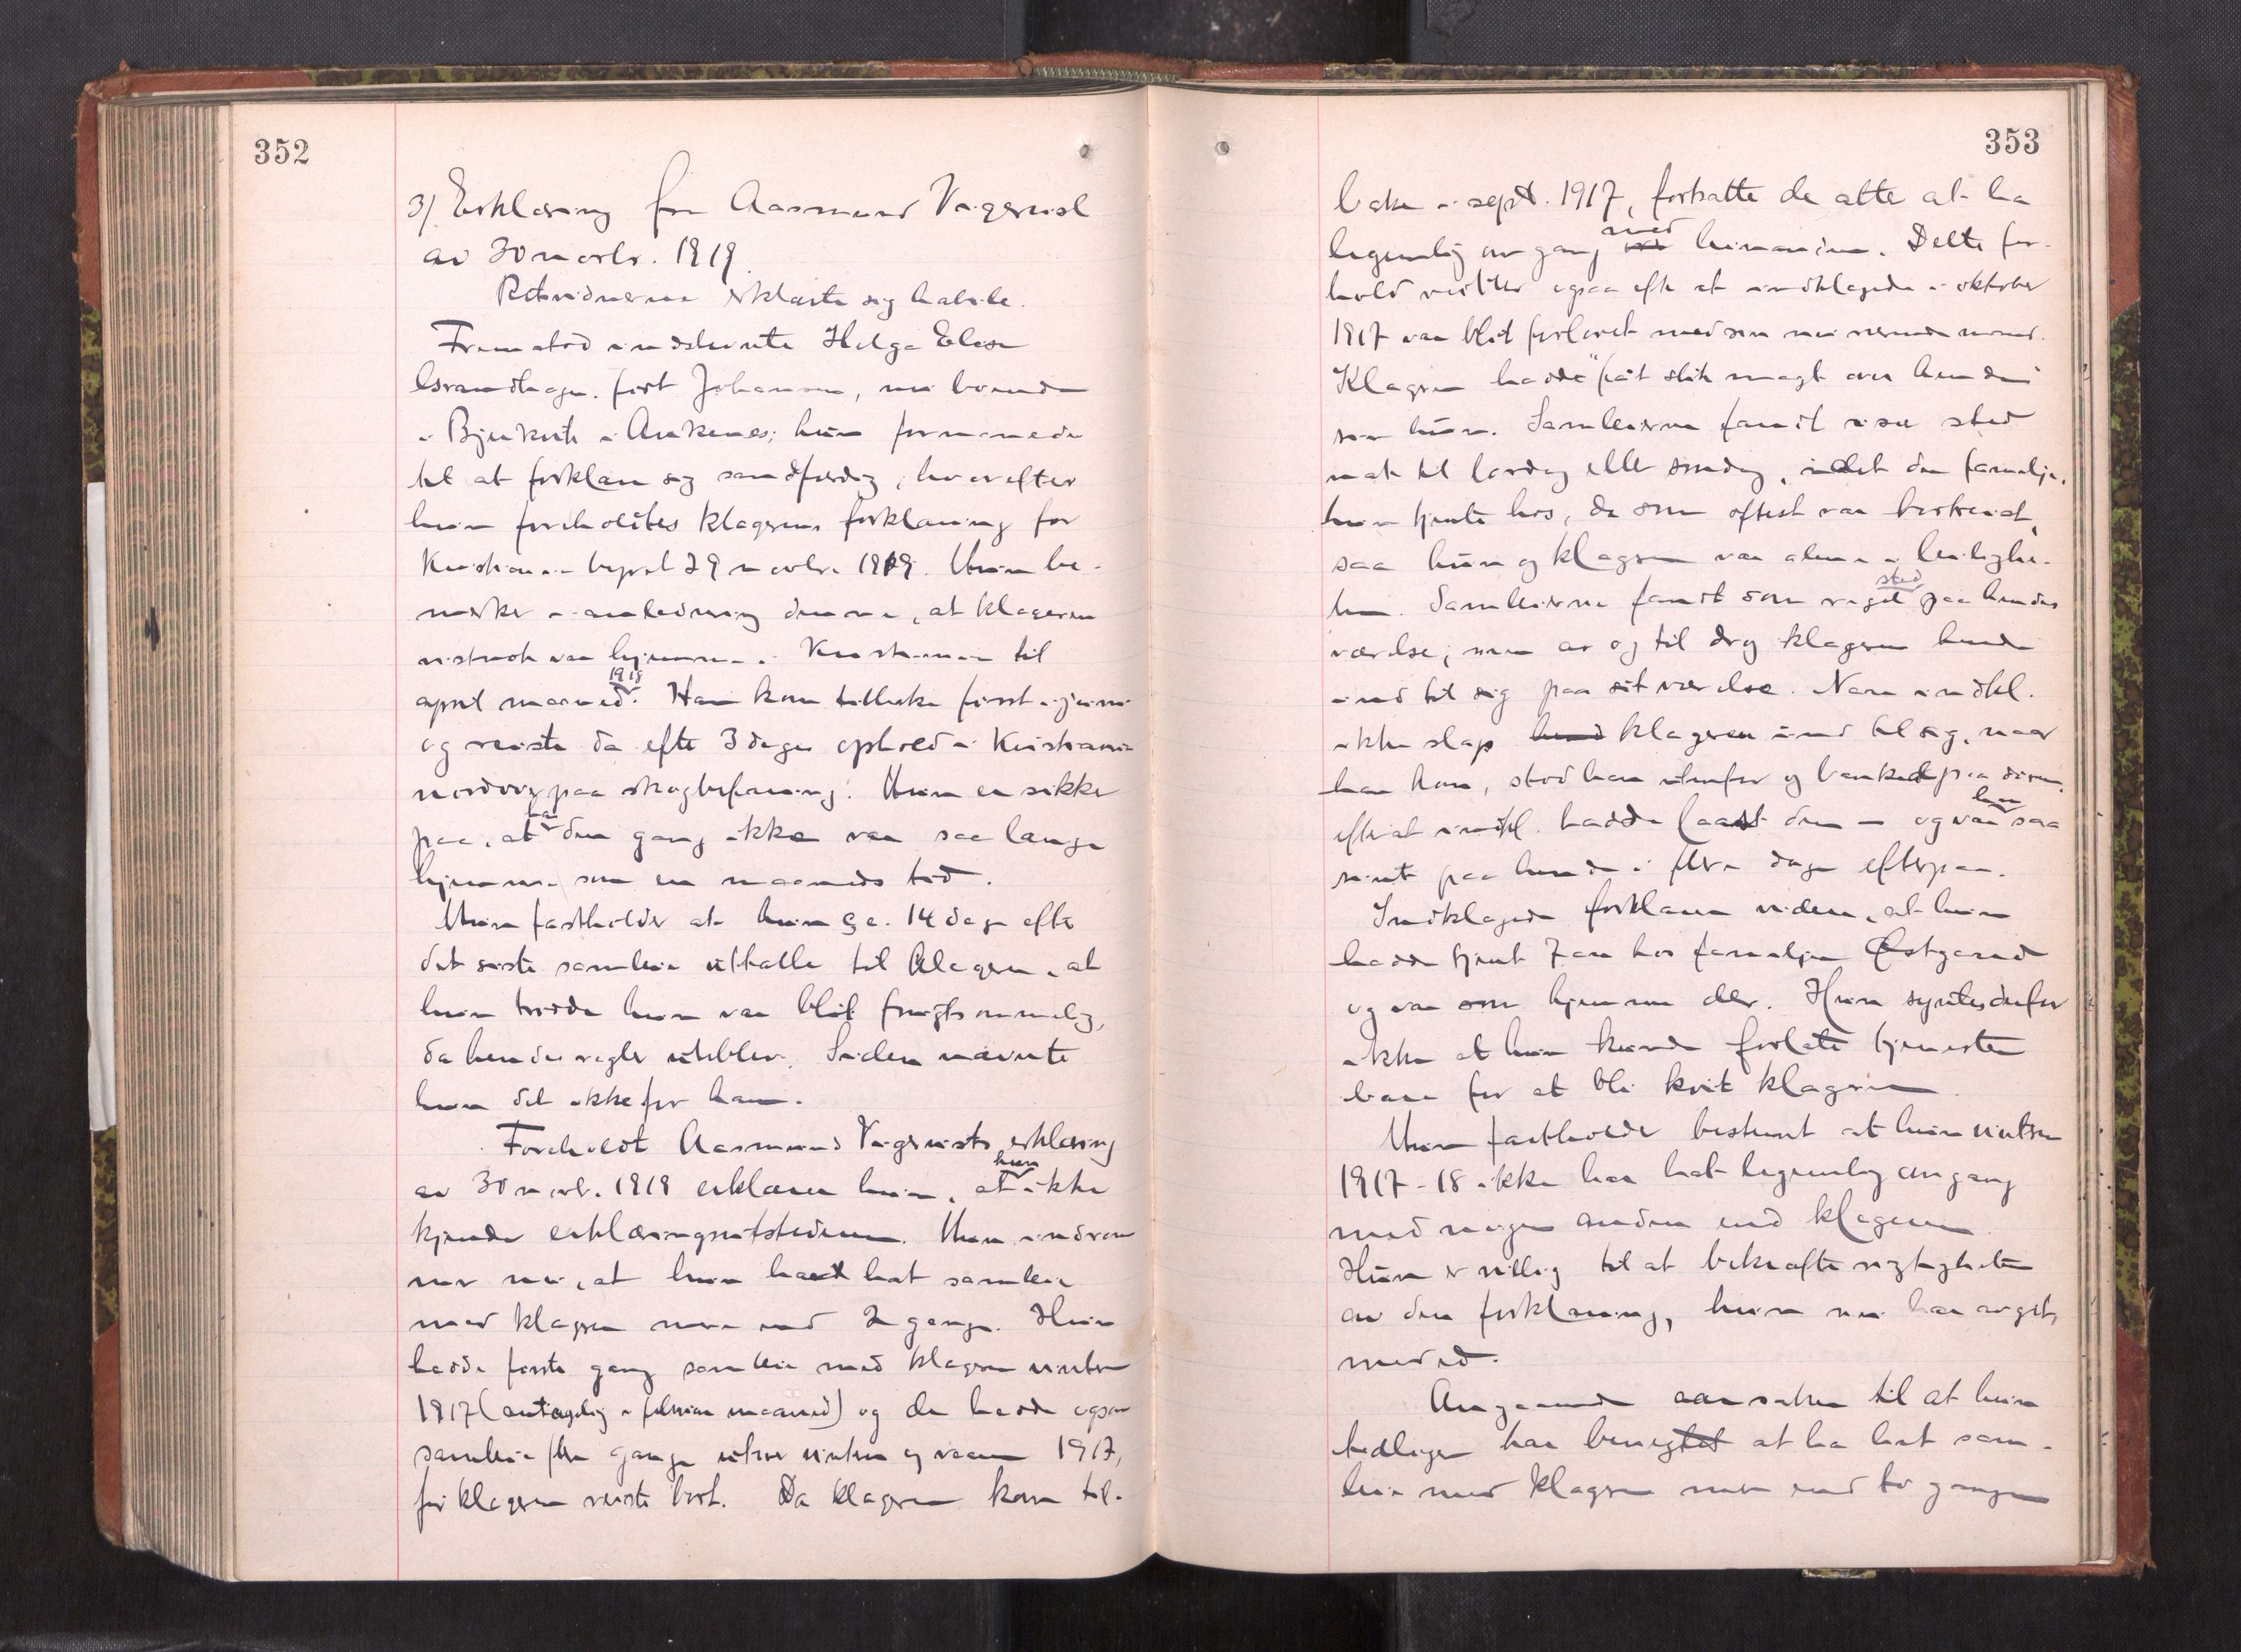 352
3) Erklæring fra Aasmund Vigernst
av 30 novbr. 1919.
Retsvidnerne erklærte sig habile.
Fremstod indstevnte Helga Elise
Brandhagen, født Johansen, nu boende
i Bjerkvik i Ankenes; hun formanedes
til at forklare sig sandfærdig, hvorefter
hun foreholdtes klagerens forklaring for
Kristiania byret 29 novbr. 1919. Hun be-
merker i anledning denne, at klageren
nistnok var hjemme i Kristiania til
april maaned 1918. Han kom tilbake først i juni
og reiste da efter 3 dages ophold i Kristiania
nordover paa skogbefaring. Hun er sikker
paa, at han den gang ikke var saa længe
hjemme som en maaneds tid.
Hun fastholder at hun ca. 14 dage efter
det siste samleie uttalte til klageren, at
hun trodde hun var blit frugtsommelig,
da hendes regler uteblev. Siden nævnte
hun det ikke for ham.
Foreholdt Aasmund Vigernsts erklæring
av 30 novbr. 1919 erklærer hun, at hun ikke
kjender erklæringsutstederen. Hun indrøm-
mer nu, at hun har hat samleie
med klageren mere end 2 gange. Hun
hadde første gang samleie med klageren vinteren
1917 (antagelig i februar maaned) og de hadde ogsaa
samleie flere gange utover vinteren og vaaren 1917,
før klageren reiste bort. Da klageren kom til-
353
bake i sept. 1917, fortsatte de atter at ha
legemlig omgang med hinanden. Dette for-
hold vedblev ogsaa efter at indklagede i oktober
1917 var blit forlovet med sin nu værende mand.
Klageren hadde "fåt slik magt over hende"
sa hun. Samleierne fandt især sted
nat til lørdag eller søndag, idet den familje,
hun tjente hos, da som oftest var bortreist,
saa hun og klageren var alene i leilighe-
ten. Samleierne fandt som regel sted paa hendes
værelse; men av og til drog klageren hende
ind til sig paa sit værelse. Naar indkl.
ikke slap klageren ind til sig, naar
han kom, stod han utenfor og banket paa døren,
efterat indkl. hadde laast den – og han var saa
sint paa hende i flere dage efterpaa.
Indklagede forklarer videre, at hun
hadde tjent 7 aar hos familjen Østgaard
og var som hjemme der. Hun syntes derfor
ikke at hun kunde forlate tjenesten
bare for at bli kvit klageren.
Hun fastholder bestemt at hun vinteren
1917-18 ikke har hat legemlig omgang
med nogen anden end klageren.
Hun er villig til at bekræfte rigtigheten
av den forklaring, hun nu har avgit,
med ed.
Angaaende aarsaken til at hun
tidligere har benegtet at ha hat sam-
leie med klageren mer end to ganger